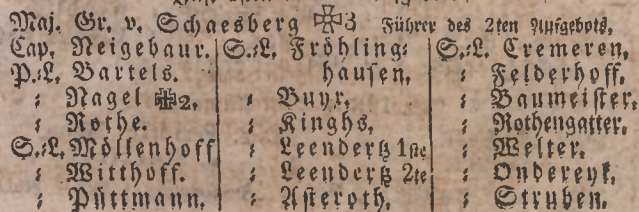 Maj. Gr. v. Schaesberg ✠3 Führer des 2ten Aufgebots.
Cap. Neigebaur.
P.:L. Bartels.
: Nagel ✠2.
: Rothe.
S.:L. Möllenhoff
: Witthoff.
: Püttmann.
S.:L. Fröhling:
hausen.
: Buyr.
: Kinghs.
: Leendertz 1ste
: Leendertz 2te
: Asteroth.
S.:L. Cremeren.
: Felderhoff.
: Baumeister.
: Rothengatter.
: Welter.
: Ondereyk.
: Struben.